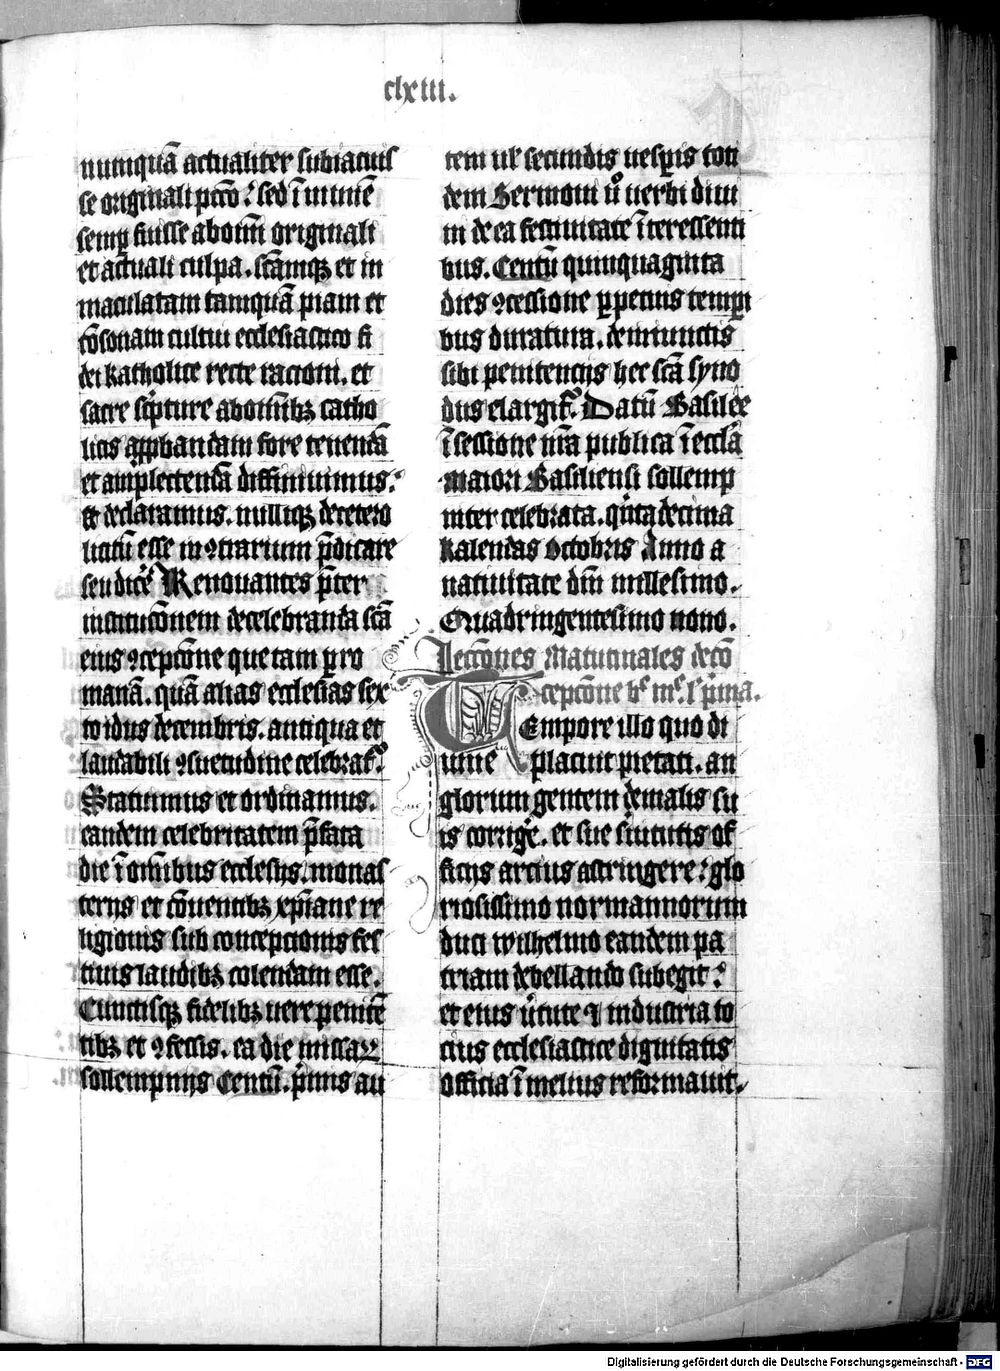 clxiii.
nunquā actualiter subiacuis
se originali pctō? sed ī mūnē
semp fuisse ab om̄i originali
et actuali culpa. sc̄amqꝫ et in
maculatam tamquā piam et
cōsonam cultui ecclesiastico fi
dei katholice recte racioni. et
sacre sc͛pture ab om̄ibꝫ catho
licis app̱bandam fore tenendā
et amplectendā diffinivimus?
Et declaramus. nulliqꝫ decetero
licitū esse in ꝯtrarium p̄dicare
seu dice͛ Renouantes p̄ter
institucōnem de celebranda sc̄a
eius ꝯcepcōne que tam ꝑ ro
manā. quā alias ecclesias sex
to idus decembris. antiqua et
laudabili ꝯsuetudine celebrat͛
Statuimus et ordinamus.
eandem celebritatem p̄fata
die ī om̄ibus ecclesijs. monas
terijs et cōuentibꝫ xp̄iane re
ligionis sub concepcionis fes
tiuis laudibꝫ colendam esse.
Cunctisqꝫ fidelibꝫ vere penitē
tibꝫ et ꝯfessis. ea die missaꝝ
sollempnijs Centū. p͛mis au
tem ul̓ secundis uesꝑis toti
dem Sermoni u͛o uerbi diui
ni de ea festiuitate ītercssenti
bus. Centū quinquaginta
dies ꝯcessione ꝑpetuis tempori
bus duratura. de iniunctis
sibi penitencijs hec sc̄a syno
dus elargit͛. Datū Basilee
ī sessione nr̄a publica ī eccl̄a
maiori Basiliensi sollemp
niter celebrata. q͛nta decima
kalendas Octobris Anno a
natiuitate dn̄i millesimo.
Quadringentesimo nono.
Lecciones Matutinales de cō
cepcōne b̄e m͛e. l̓ p͛ma.
TEmpore illo quo di
uine placuit pietati. an
glorum gentem de malis su
is corrige͛. et sue s̄uitutis of
ficijs arcius astringere? glo
riosissimo normannorum
duci wilhelmo eandem pa
triam debellando subegit?
et eius u͛tute ⁊ industria to
cius ecclesiastice dignitatis
officia ī melius reformauit.
Digitalisierung gefördert durch die Deutsche Forschungsgemeinschaft - DFG